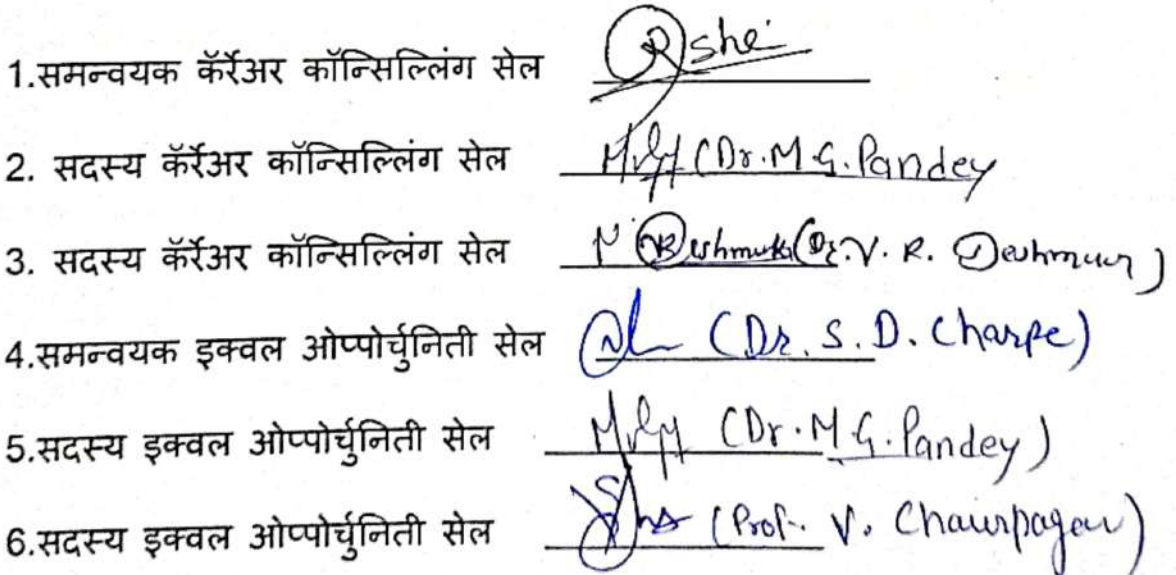 1.समन्वयक कॅर्रेअर कॉन्सिल्लिंग सेल
2. सदस्य कॅर्रेअर कॉन्सिल्लिंग सेल (Dr. M. G. Pandey
3. सदस्य कॅर्रेअर कॉन्सिल्लिंग सेल (Dr. V. R. Deshmukh)
4.समन्वयक इक्वल ओप्पोर्चुनिती सेल (Dr. S. D. Charpe)
5.सदस्य इक्वल ओप्पोर्चुनिती सेल (Dr. M. G. Pandey)
6.सदस्य इक्वल ओप्पोर्चुनिती सेल (Prof. V.